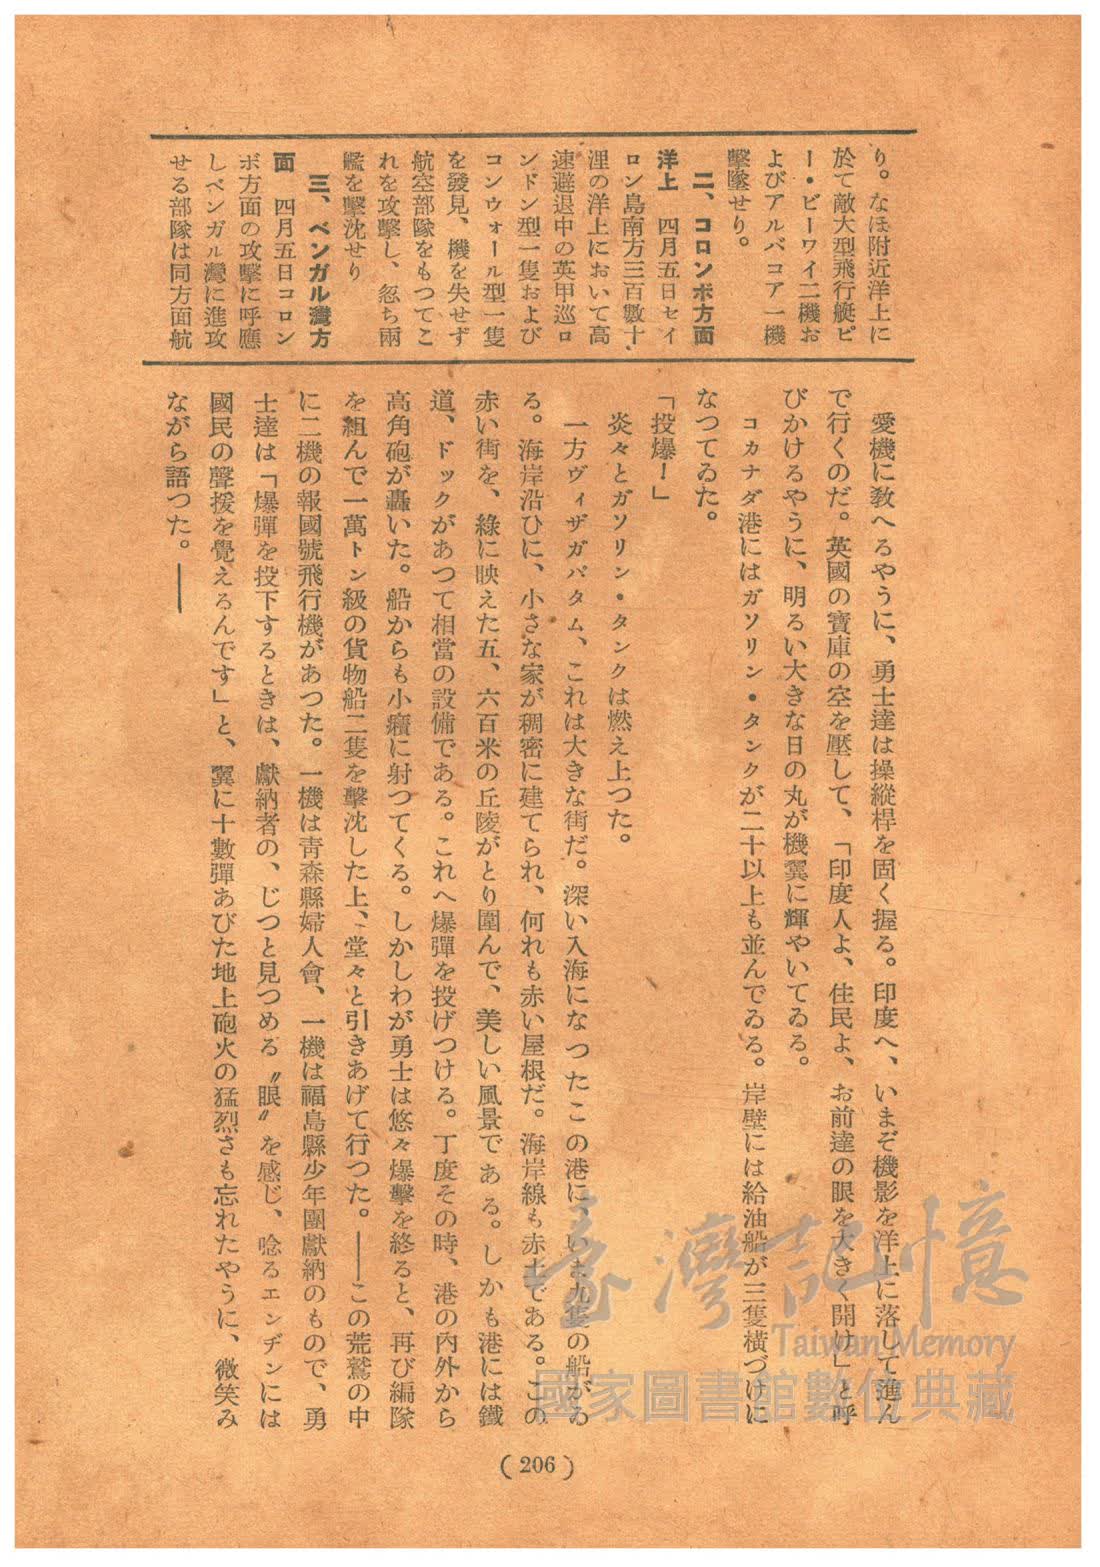 り。なほ附近洋上に
於て敵大型飛行艇ピ
ー・ビーワイ二機お
よびアルバコア一機
擊墜せり。
二、コロンボ方面
洋上　四月五日セイ
ロン島南方三百數十
浬の洋上において高
速避退中の英甲巡ロ
ンドン型一隻および
コンウォール型一隻
を發見、機を失せず
航空部隊をもつてこ
れを攻擊し、忽ち兩
艦を擊沈せり
三、ベンガル灣方
面　四月五日コロン
ボ方面の攻擊に呼應
しベンガル灣に進攻
せる部隊は同方面航
愛機に敎へるやうに、勇士達は操縱桿を固く握る。印度へ、いまぞ機影を洋上に落して進ん
で行くのだ。英國の寶庫の空を壓して、「印度人よ、住民よ、お前達の眼を大きく開け」と呼
びかけるやうに、明るい大きな日の丸が機翼に輝やいてゐる。
コカナダ港にはガソリン・タンクが二十以上も並んでゐる。岸壁には給油船が三隻橫づけに
なつてゐた。
「投爆！」
炎々とガソリン・タンクは燃え上つた。
一方ヴィザガパタム、これは大きな街だ。深い入海になつたこの港に、いま九隻の船がゐ
る。海岸沿ひに、小さな家が稠密に建てられ、何れも赤い屋根だ。海岸線も赤土である。この
赤い街を、綠に映えた五、六百米の丘陵がとり圍んで、美しい風景である。しかも港には鐵
道、ドックがあつて相當の設備である。これへ爆彈を投げつける。丁度その時、港の內外から
高角砲が轟いた。船からも小癪に射つてくる。しかしわが勇士は悠々爆擊を終ると、再び編隊
を組んで一萬トン級の貨物船二隻を擊沈した上、堂々と引きあげて行つた。――この荒鷲の中
に二機の報國號飛行機があつた。一機は靑森縣婦人會、一機は福島縣少年團獻納のもので、勇
士達は「爆彈を投下するときは、獻納者の、じつと見つめる〝眼〟を感じ、唸るエンヂンには
國民の聲援を覺えるんです」と、翼に十數彈あびた地上砲火の猛烈さも忘れたやうに、微笑み
ながら語つた。――
( 206 )
臺灣記憶
Taiwan Memory
國家圖書館數位典藏